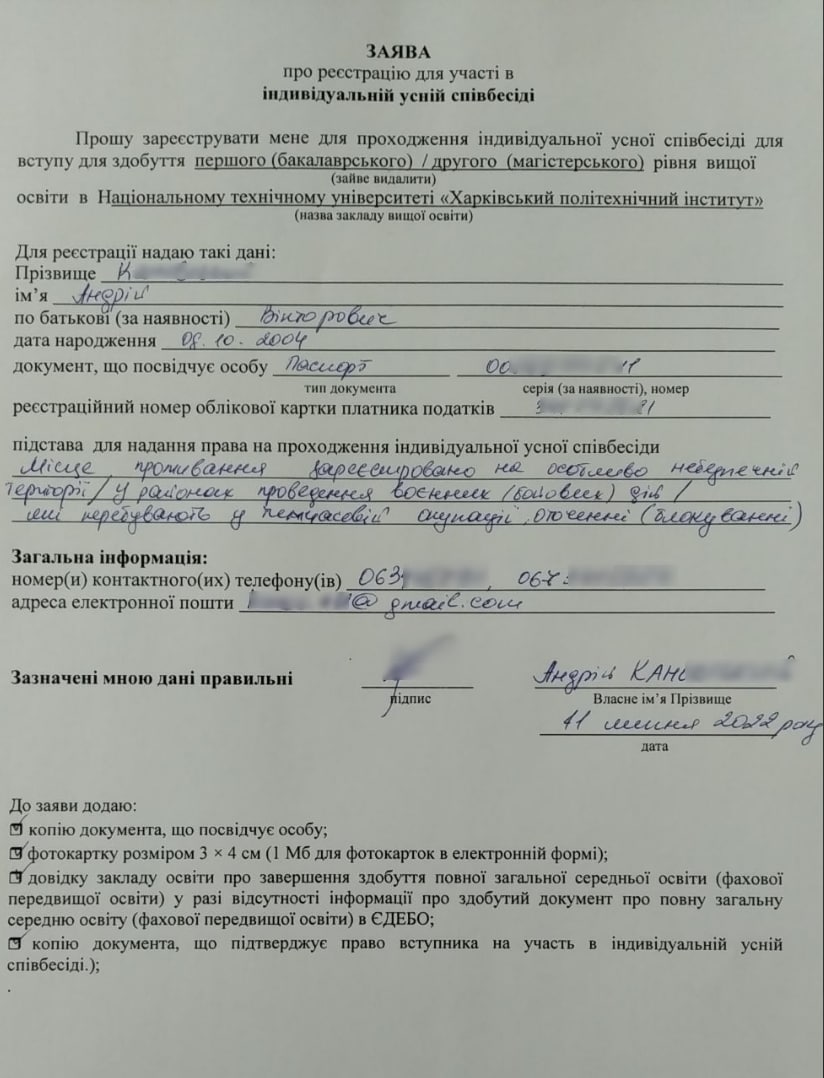 ЗАЯВА
про реєстрацію для участі в
індивідуальній усній співбесіді
Прошу зареєструвати мене для проходження індивідуальної усної співбесіді для
вступу для здобуття першого (бакалаврського) / другого (магістерського) рівня вищої
(зайве видалити)
освіти в Національному технічному університеті «Харківський політехнічний інститут»
(назва закладу вищої освіти)
Для реєстрації надаю такі дані:
Прізвище К
ім’я Андрій
по батькові (за наявності) Вікторович
дата народження 08.10.2004
документ, що посвідчує особу Паспорт 00 11
тип документа серія (за наявності), номер
реєстраційний номер облікової картки платника податків 3 21
підстава для надання права на проходження індивідуальної усної співбесіди
Місце проживання зареєстровано на особливо небезпечній
території / у районах проведення воєнних (бойових) дій /
які перебувають у тимчасовій окупації, оточенні (блокуванні)
Загальна інформація:
номер(и) контактного(их) телефону(ів) 063 , 067
адреса електронної пошти @gmail.com
Зазначені мною дані правильні Андрій КАН
підпис Власне ім’я Прізвище
11 липня 2022 року
дата
До заяви додаю:
копію документа, що посвідчує особу;
фотокартку розміром 3 × 4 см (1 Мб для фотокарток в електронній формі);
довідку закладу освіти про завершення здобуття повної загальної середньої освіти (фахової
передвищої освіти) у разі відсутності інформації про здобутий документ про повну загальну
середню освіту (фахової передвищої освіти) в ЄДЕБО;
копію документа, що підтверджує право вступника на участь в індивідуальній усній
співбесіді.);
.